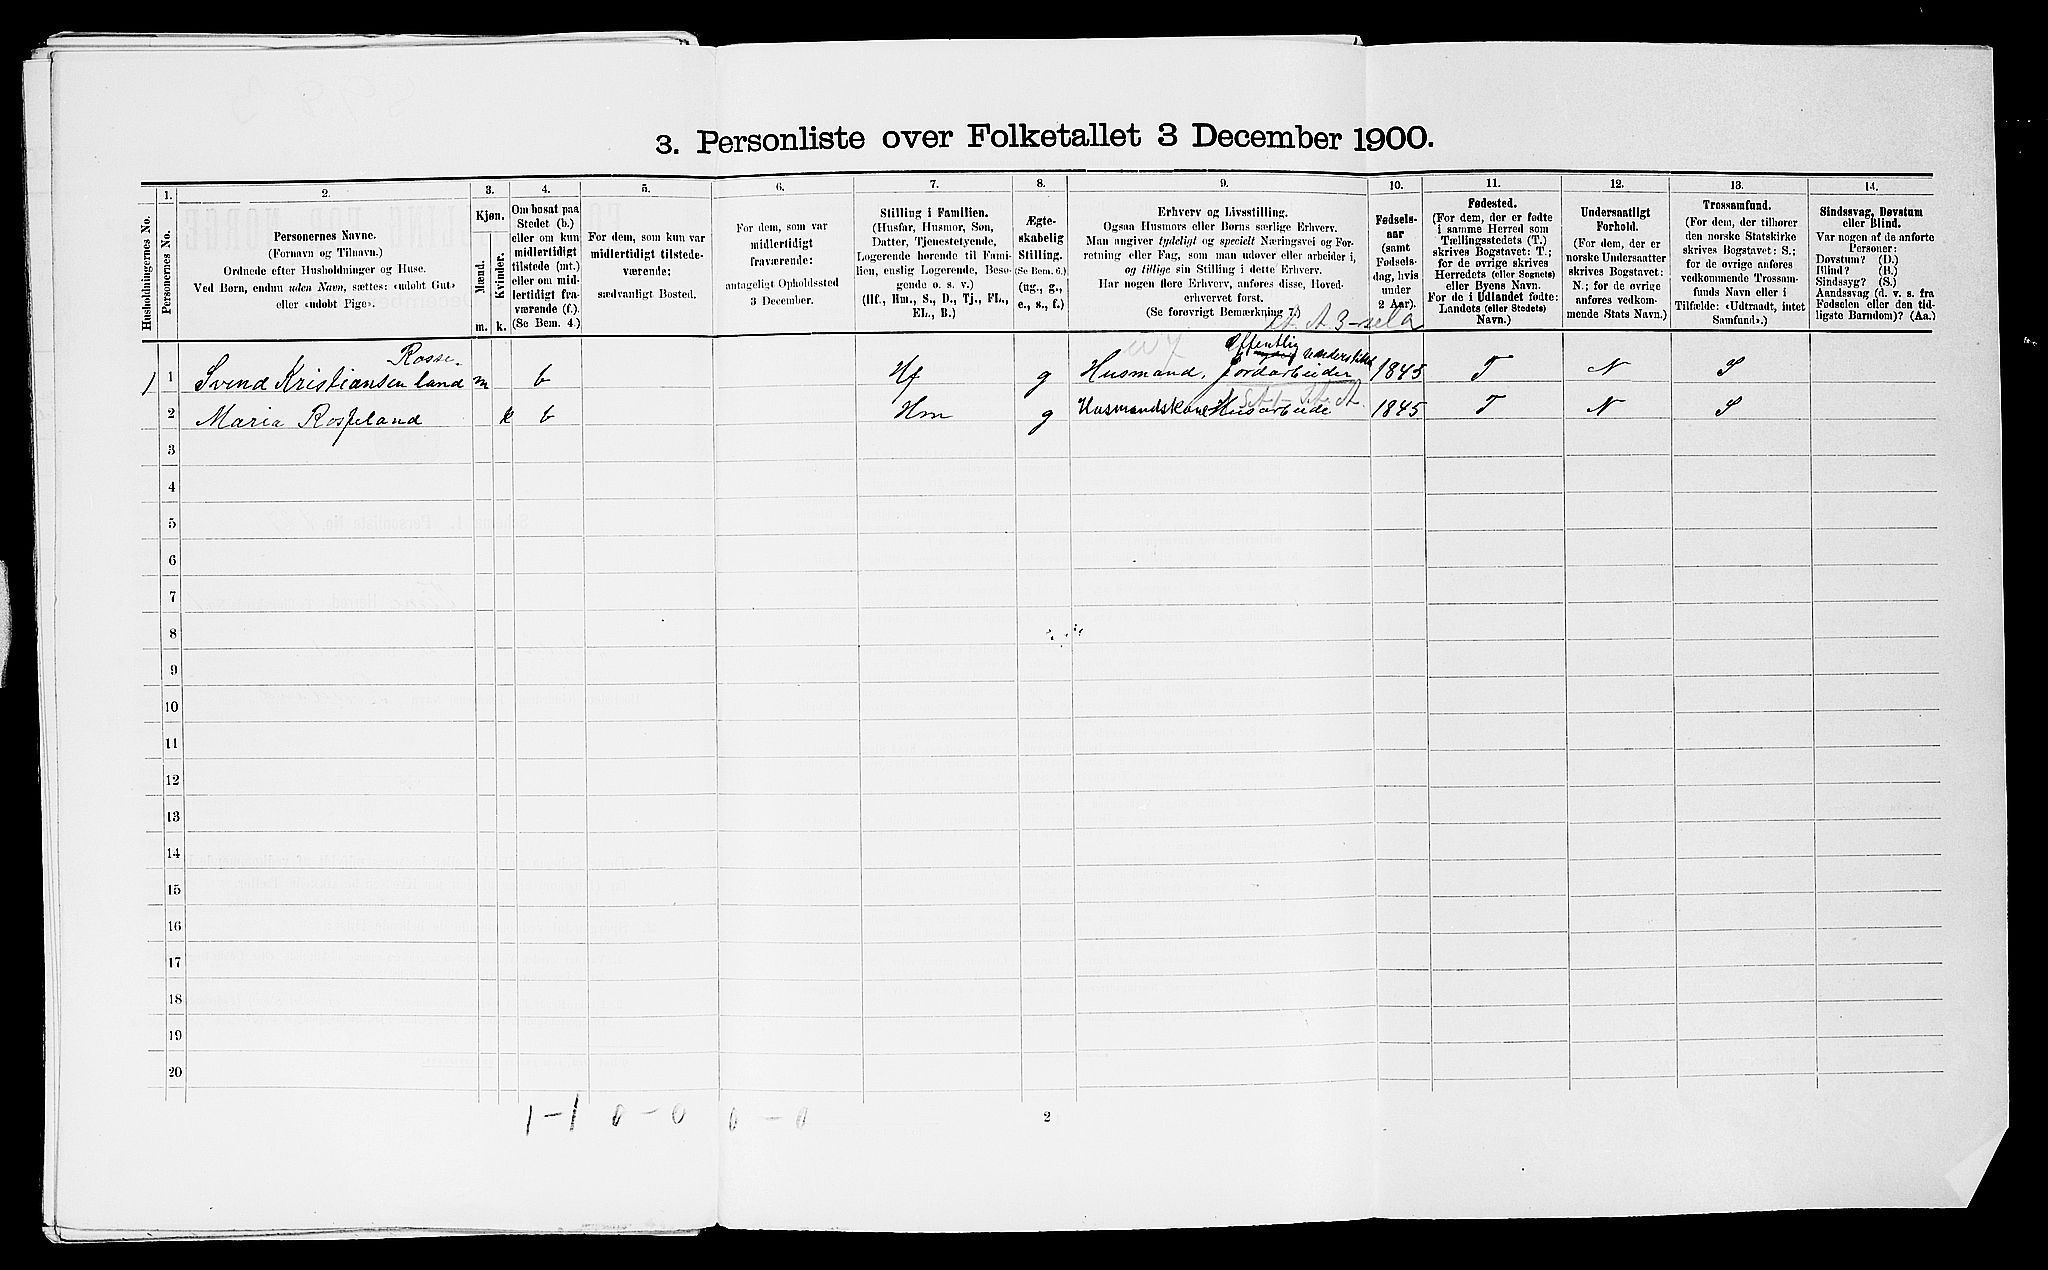 3. Personliste over Folketallet 3 December 1900.
Husholdningernes No.
1.
Personernes No.
2.
Personernes Navne.
(Fornavn og Tilnavn.)
Ordnede efter Husholdninger og Huse.
Ved Børn, endnu uden Navn, sættes: «udøbt Gut»
eller «udøbt Pige».
3.
Kjøn.
Mænd.
Kvinder.
m.
k.
4.
Om bosat paa
Stedet (b.)
eller om kun
midlertidigt
tilstede (mt.)
eller om mid-
lertidigt fra-
værende (f.).
(Se Bem. 4.)
5.
For dem, som kun var
midlertidigt tilstede-
værende:
sædvanligt Bosted.
6.
For dem, som var
midlertidigt
fraværende:
antageligt Opholdssted
3 December.
7.
Stilling i Familien.
(Husfar, Husmor, Søn,
Datter, Tjenestetyende,
Logerende hørende til Fami-
lien, enslig Logerende, Besø-
gende o. s. v.)
(Hf., Hm., S., D., Tj., FL.,
EL., B.)
8.
Ægte-
skabelig
Stilling.
(Se Bem. 6.)
(ug., g.,
e., s., f.)
9.
Erhverv og Livsstilling.
Ogsaa Husmors eller Børns særlige Erhverv.
Man angiver tydeligt og specielt Næringsvei og For-
retning eller Fag, som man udøver eller arbeider i,
og tillige sin Stilling i dette Erhverv.
Har nogen flere Erhverv, anføres disse, Hoved-
erhvervet først.
(Se forøvrigt Bemærkning 7.)
10.
Fødsels-
aar
(samt
Fødsels-
dag, hvis
under
2 Aar).
11.
Fødested.
(For dem, der er fødte
i samme Herred som
Tællingsstedets (T.)
skrives Bogstavet: T.;
for de øvrige skrives
Herredets (eller Sognets)
eller Byens Navn.
For de i Udlandet fødte:
Landets (eller Stedets)
Navn.)
12.
Undersaatligt
Forhold.
(For dem, der er
norske Undersaatter
skrives Bogstavet:
N.; for de øvrige
anføres vedkom-
mende Stats Navn.)
13.
Trossamfund.
(For dem, der tilhører
den norske Statskirke
skrives Bogstavet: S.;
for de øvrige anføres
vedkommende Trossam-
funds Navn eller i
Tilfælde: «Udtraadt, intet
Samfund».)
14.
Sindssvag, Døvstum
eller Blind.
Var nogen af de anførte
Personer:
Døvstum? (D.)
Blind? (B.)
Sindssyg? (S.)
Aandssvag (d. v. s. fra
Fødselen eller den tid-
ligste Barndom)? (Aa.)
Offentlig understøttet
1 1 Svend Kristiansen Rosse-land m b Hf g Husmand, Jordarbeider 1845 T N S
2 Maria Rosseland k b Hm g Husmandskone Husarbeide 1845 T N S
3
4
5
6
7
8
9
10
11
12
13
14
15
16
17
18
19
20
1-1 0-0 0-0
2